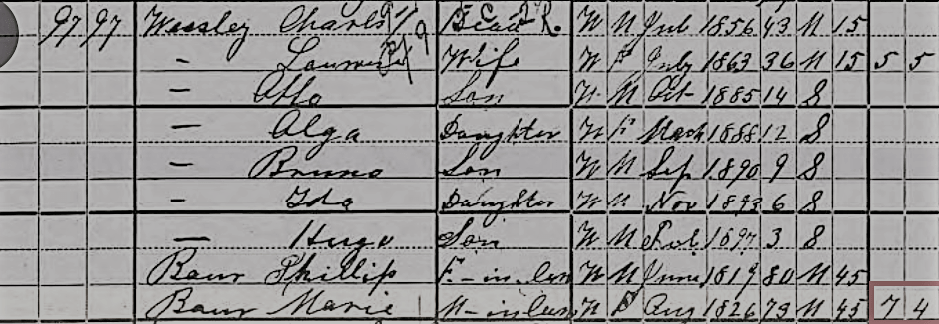 97 97 Wessley Charles Head W M Jul 1856 43 M 15
— Wife W F July 1863 36 M 15 5 5
— Otto Son W M Oct 1885 14 S
— Olga Daughter W F Mach 1888 12 S
— Bruno Son W M Sep 1890 9 S
— Ida Daughter W M Nov 1893 6 S
— Hugo Son W M Feb 1897 3 S
Baur Phillip F-in law W M June 1819 80 M 45
Baur Marie M-in law W F Aug 1826 73 M 45 7 4